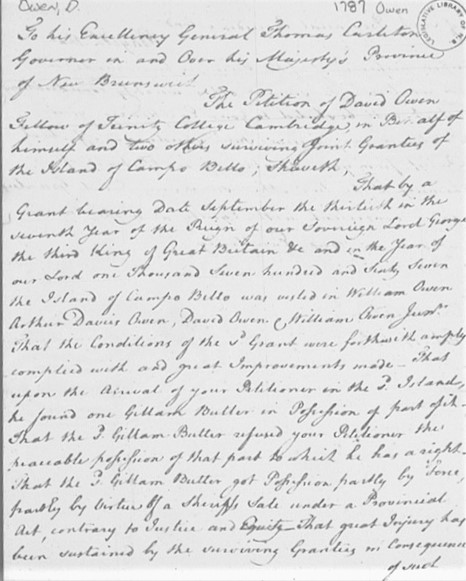 Owen, D.
1787 Owen
LEGISLATIVE LIBRARY
To his Excellency General Thomas Carleton
Governor in and Over his Majesty's Province
of New Brunswick
The Petition of David Owen
Fellow of Trinity College Cambridge, in Behalf of
himself and two others surviving Joint Grantees of
the Island of Campo Bello, Sheweth,
That by a
Grant bearing Date September the thirtieth in the
seventh Year of the Reign of our Sovereign Lord George
the third King of Great Britain &c and in the Year of
our Lord one Thousand Seven hundred and Sixty Seven
the Island of Campo Bello was vested in William Owen
Arthur Davies Owen, David Owen & William Owen Junr.
That the Conditions of the sd. Grant were forthwith amply
complied with and great Improvements made - That
upon the Arrival of your Petitioner in the sd. Island,
he found one Gillam Butler in Possession of part of it -
That the sd. Gillam Butler refused your Petitioner the
peaceable possession of that part to which he has a right -
That the sd. Gillam Butler got Possession partly by Force,
partly by virtue of a Sheriffs Sale under a Provincial
Act, contrary to Justice and Equity - That great Injury has
been sustained by the surviving Grantees in Consequence
of such